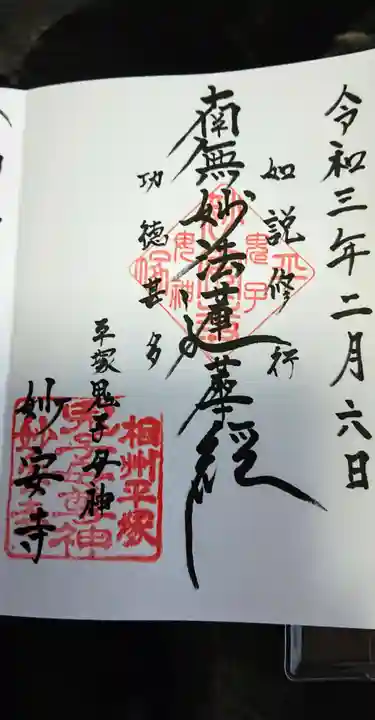 令和三年二月六日
如説修行
南無妙法蓮華経
功徳甚多
平塚鬼子母神
妙安寺
相州平塚
鬼子母神